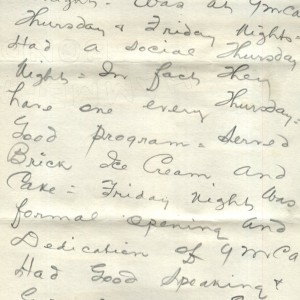 Night - Was at YMCA
Thursday & Friday Nights =
Had a social Thursday
Night = In fact they
have one every Thursday =
Good program = Served
Brick Ice Cream and
Cake = Friday Night Was
formal opening and
Dedication of YMCA
Had Good Speaking &